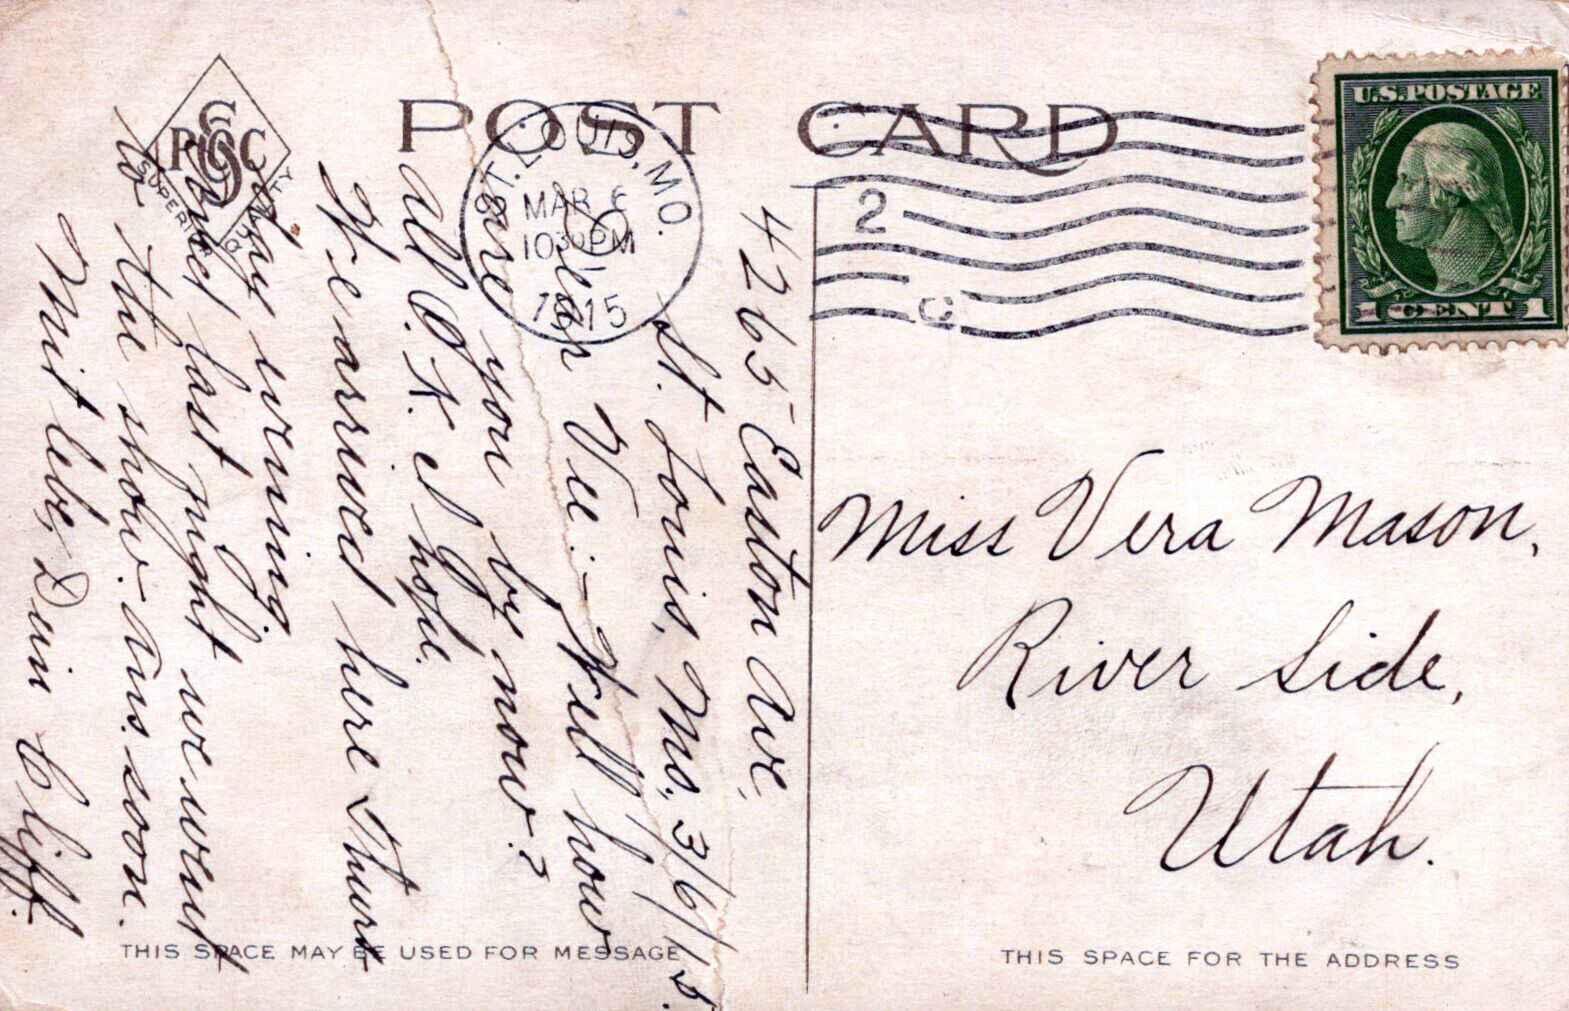 POST CARD
PSCC
SUPERIOR QUALITY
ST. LOUIS, MO.
MAR 6
10 30 PM
1915
2
C
U.S. POSTAGE
1 CENT 1
4265 Easton Ave,
St. Louis, Mo., 3/6/15.
Vee:- Well how
are you by now?
All O.K. I hope.
We arrived here Thurs
day evening.
last night we went
to the show. Ans. soon.
Cliff.
Miss Vera Mason,
River Side,
Utah.
THIS SPACE MAY BE USED FOR MESSAGE
THIS SPACE FOR THE ADDRESS